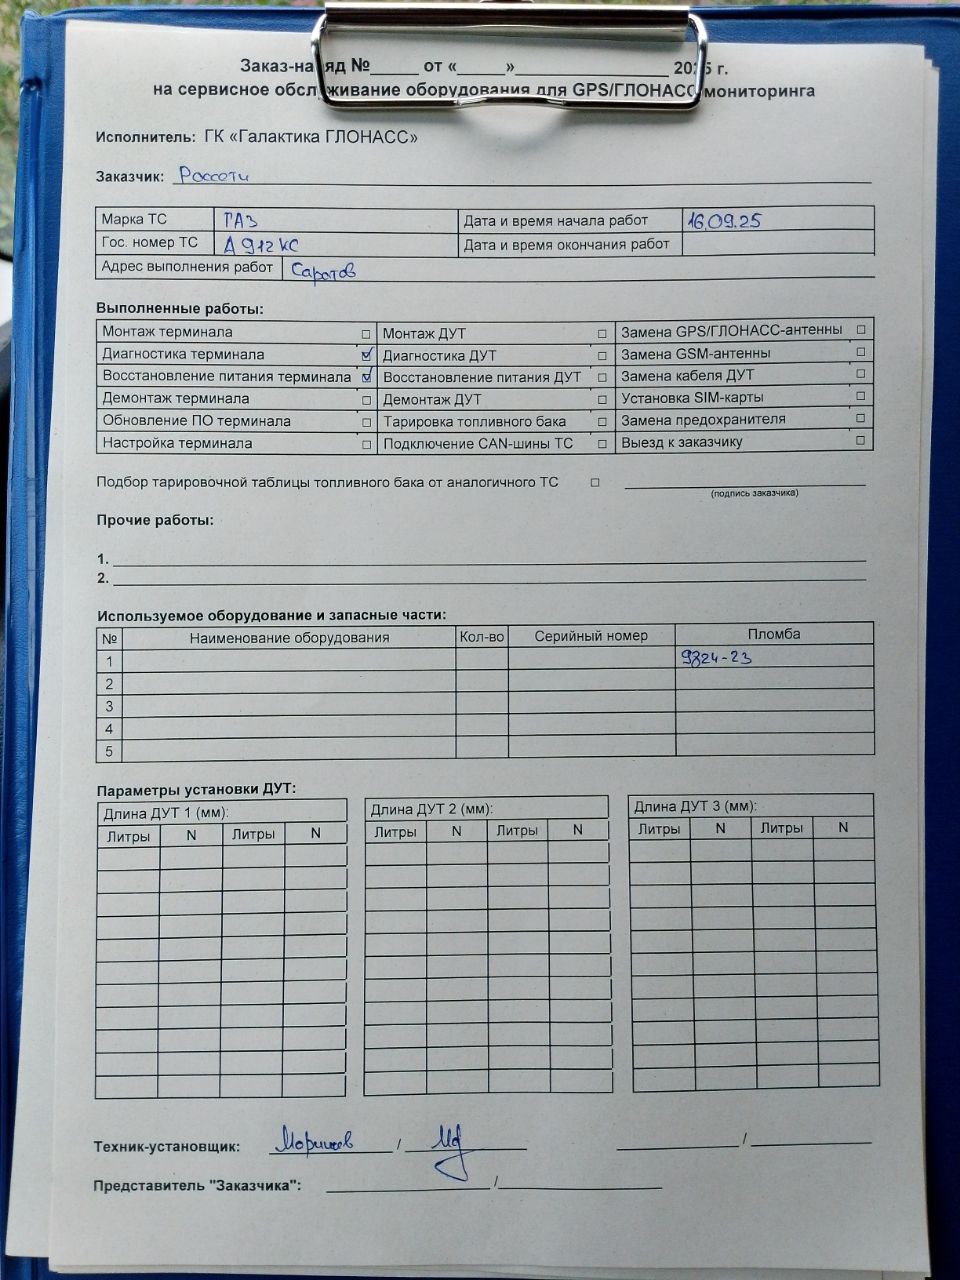 Заказ-наряд №_____ от «_____»________________ 2025 г.
на сервисное обслуживание оборудования для GPS/ГЛОНАСС мониторинга
Исполнитель: ГК «Галактика ГЛОНАСС»
Заказчик: Россети
Марка ТС ГАЗ Дата и время начала работ 16.09.25
Гос. номер ТС Д 912 КС Дата и время окончания работ
Адрес выполнения работ Саратов
Выполненные работы:
Монтаж терминала ☐ Монтаж ДУТ ☐ Замена GPS/ГЛОНАСС-антенны ☐
Диагностика терминала ☑ Диагностика ДУТ ☐ Замена GSM-антенны ☐
Восстановление питания терминала ☑ Восстановление питания ДУТ ☐ Замена кабеля ДУТ ☐
Демонтаж терминала ☐ Демонтаж ДУТ ☐ Установка SIM-карты ☐
Обновление ПО терминала ☐ Тарировка топливного бака ☐ Замена предохранителя ☐
Настройка терминала ☐ Подключение CAN-шины ТС ☐ Выезд к заказчику ☐
Подбор тарировочной таблицы топливного бака от аналогичного ТС ☐
(подпись заказчика)
Прочие работы:
1.
2.
Используемое оборудование и запасные части:
№ Наименование оборудования Кол-во Серийный номер Пломба
1 9824-23
2
3
4
5
Параметры установки ДУТ:
Длина ДУТ 1 (мм): Длина ДУТ 2 (мм): Длина ДУТ 3 (мм):
Литры N Литры N Литры N Литры N Литры N Литры N
Техник-установщик: / /
Представитель "Заказчика": /